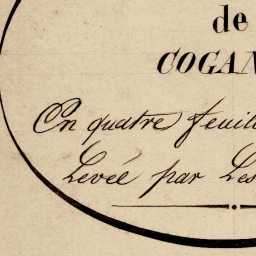 de
COGAN
En quatre feuill
Levée par Les